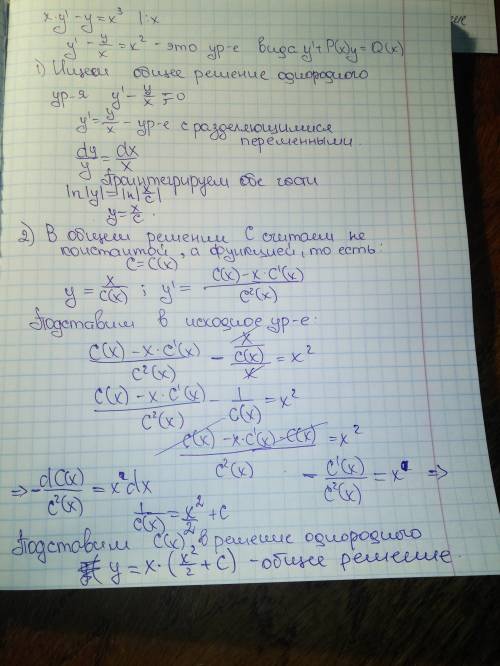 x·y' - y = x³ |:x
y' - y/x = x² - это ур-е вида y' + P(x)y = Q(x)
1) Ищем общее решение однородного
ур-я y' - y/x = 0
y' = y/x - ур-е с разделяющимися
переменными.
dy/y = dx/x
Проинтегрируем обе части
ln|y| = ln|x/C|
y = x/C.
2) В общем решении C считаем не
константой, а функцией, то есть:
C = C(x)
y = x/C(x); y' = (C(x) - x·C'(x))/C²(x)
Подставим в исходное ур-е:
(C(x) - x·C'(x))/C²(x) - (x/C(x))/x = x²
(C(x) - x·C'(x))/C²(x) - 1/C(x) = x²
(C(x) - x·C'(x) - C(x))/C²(x) = x²
- C'(x)/C²(x) = x =>
=> - dC(x)/C²(x) = x dx
1/C(x) = x²/2 + C
Подставим C(x) в решение однородного
y = x·(x²/2 + C) - общее решение.